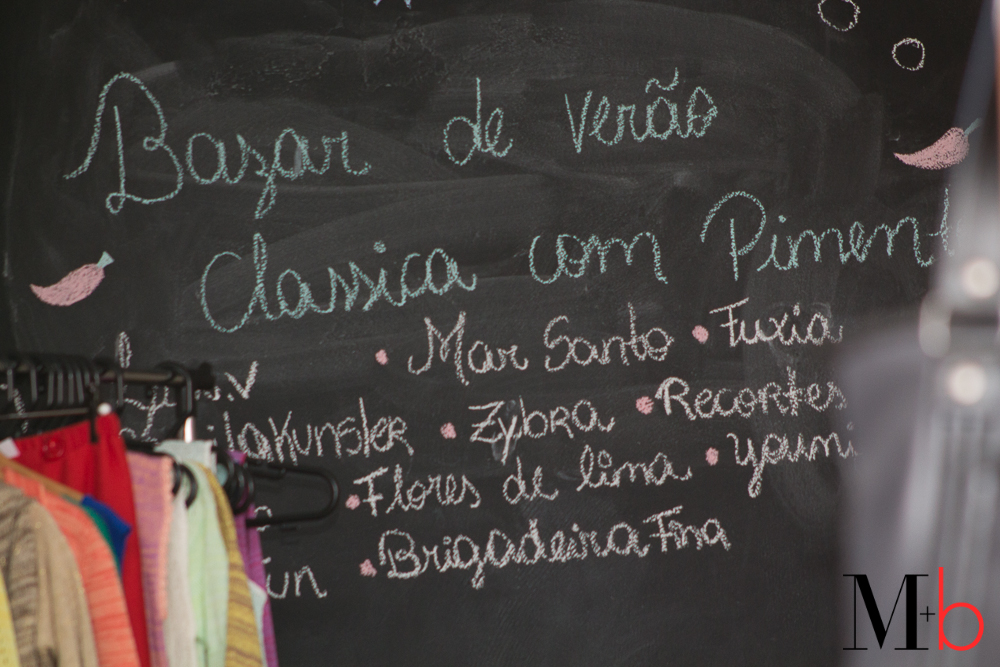 Bazar de verão
Classica com Piment
• Mar Santo • Fuxia
• Zybra • Recortes
• Flores de lima
• Brigadeiria Fina
M+b